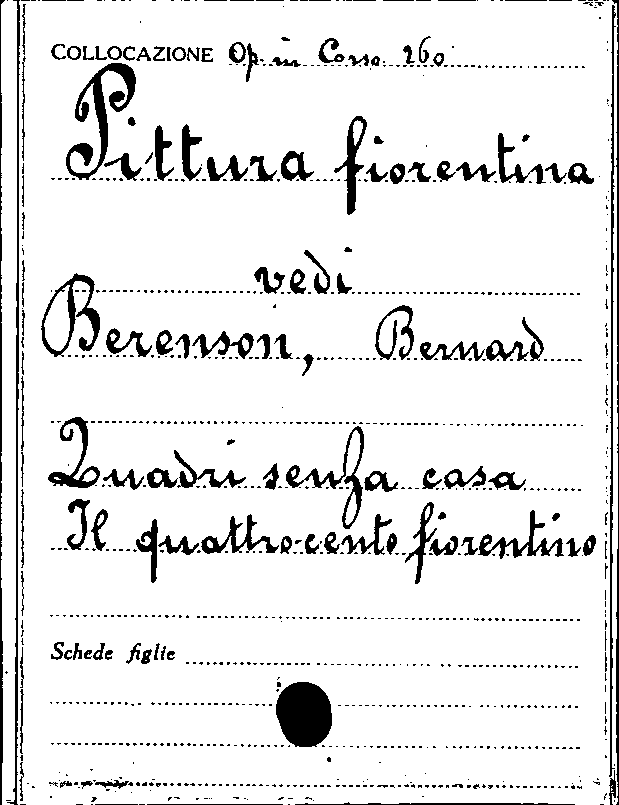 COLLOCAZIONE Op. in Corso 260
Pittura fiorentina
vedi
Berenson, Bernard
Quadri senza casa
Il quattrocento fiorentino
Schede figlie